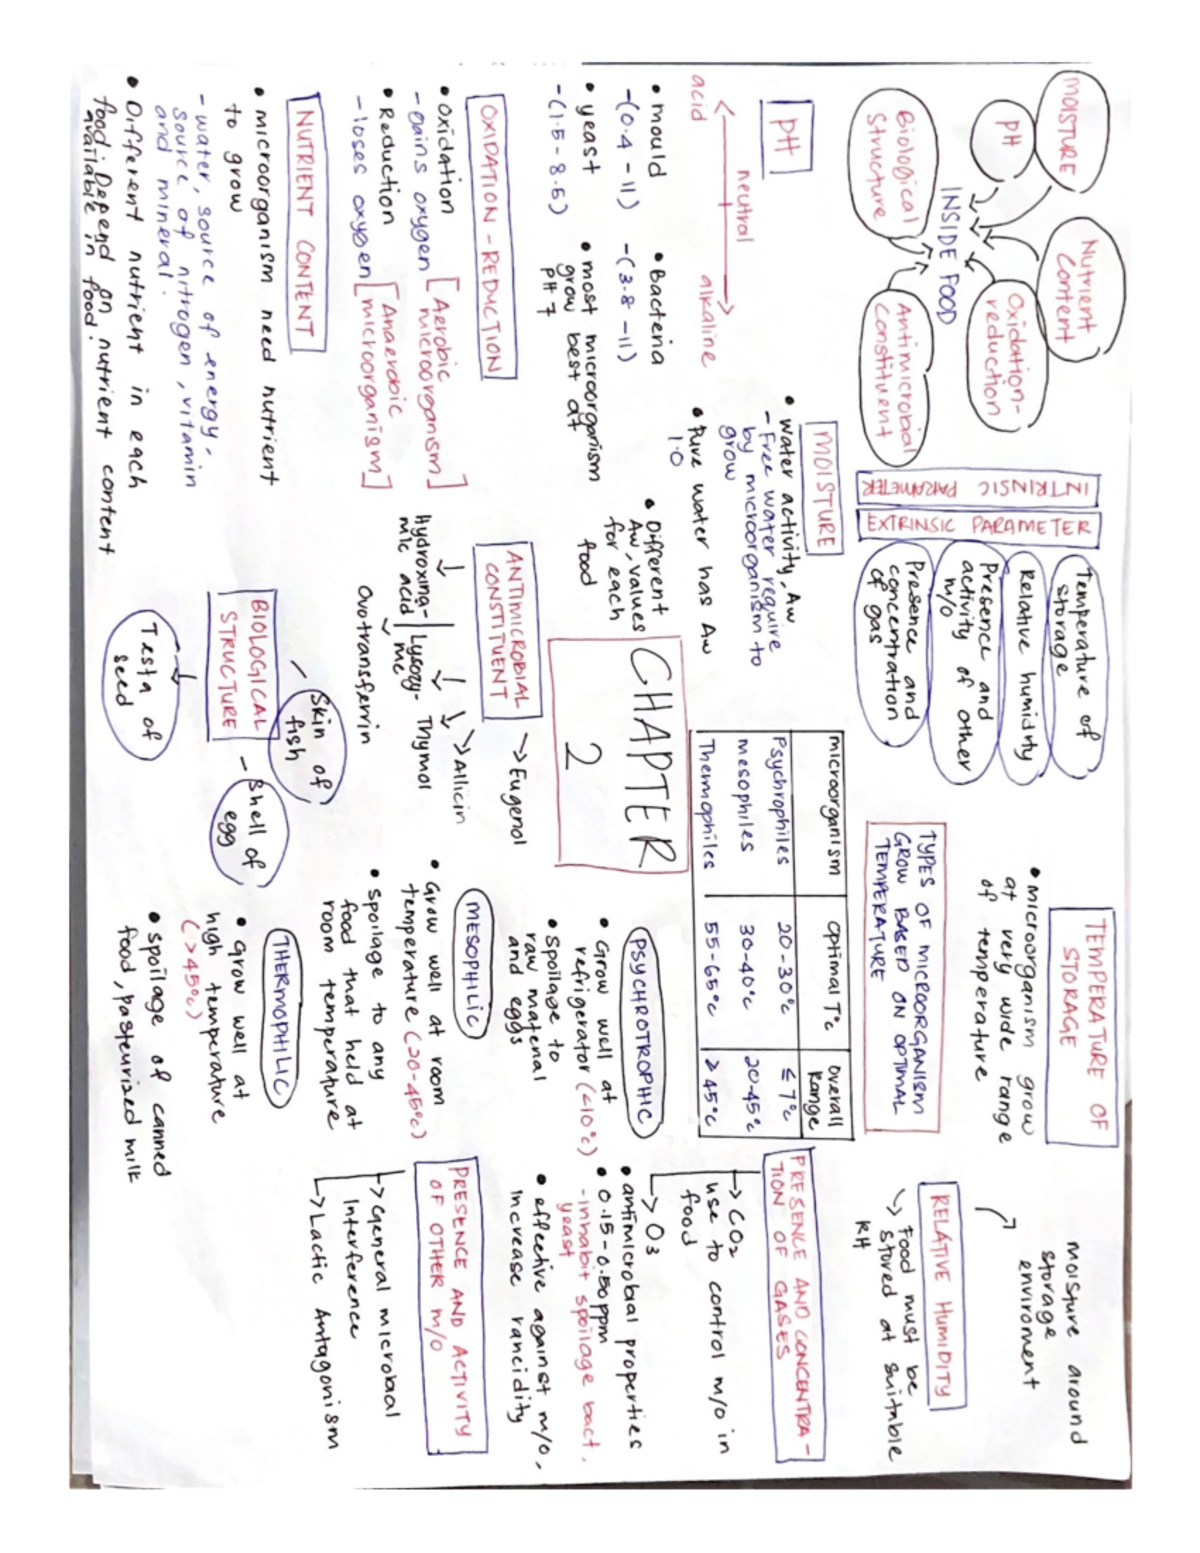 MOISTURE
PH
Biological
Structure
INSIDE FOOD
Nutrient
Content
Oxidation-
reduction
Antimicrobial
Constituent
INTRINSIC PARAMETER
EXTRINSIC PARAMETER
Temperature of
storage
Relative humidity
Presence and
activity of other
m/o
Presence and
concentration
of gas
PH
neutral
acid
alkaline
• mould
-(0.4 - 11)
• Bacteria
-(3.8 - 11)
• yeast
-(1.5 - 8.5)
• most microorganism
grow best at
PH 7
MOISTURE
• water activity, Aw
- Free water require
by microorganism to
grow
• Pure water has Aw
1.0
• Different
Aw, values
for each
food
OXIDATION-REDUCTION
• Oxidation
- gains oxygen [Aerobic
microorganism]
• Reduction
- loses oxygen [Anaerobic
microorganism]
NUTRIENT CONTENT
• microorganism need nutrient
to grow
- water, source of energy,
source of nitrogen, vitamin
and mineral.
• Different nutrient in each
food. Depend on nutrient content
available in food.
CHAPTER
2
ANTIMICROBIAL
CONSTITUENT
→ Eugenol
→ Allicin
Thymol
Lysozy-
me
Hydroxing-
mic acid
Ovotransferrin
BIOLOGICAL
STRUCTURE
- Skin of
fish
- Shell of
egg
Testa of
seed
TEMPERATURE OF
STORAGE
• microorganism grow
at very wide range
of temperature
TYPES OF MICROORGANISM
GROW BASED ON OPTIMAL
TEMPERATURE
microorganism Optimal T°c overall Range
Psychrophiles 20-30°c ≤ 7°c
mesophiles 30-40°c 20-45°c
Themophiles 55-65°c ≥ 45°c
PSYCHROTROPHIC
• Grow well at
refrigerator (<10°c)
• spoilage to
raw material
and eggs
MESOPHILIC
• Grow well at room
temperature (20-45°c)
• spoilage to any
food that held at
room temperature
THERMOPHILIC
• grow well at
high temperature
(>45°c)
• spoilage of canned
food, pasteurized milk
moisture around
storage
environment
RELATIVE HUMIDITY
↳ Food must be
stored at suitable
RH
PRESENCE AND CONCENTRA-
TION OF GASES
→ CO2
use to control m/o in
food
→ O3
• antimicrobial properties
• 0.15-0.50ppm
-inhabit spoilage bact,
yeast
• effective against m/o,
increase rancidity
PRESENCE AND ACTIVITY
OF OTHER M/O
→ General microbial
Interference
→ Lactic Antagonism